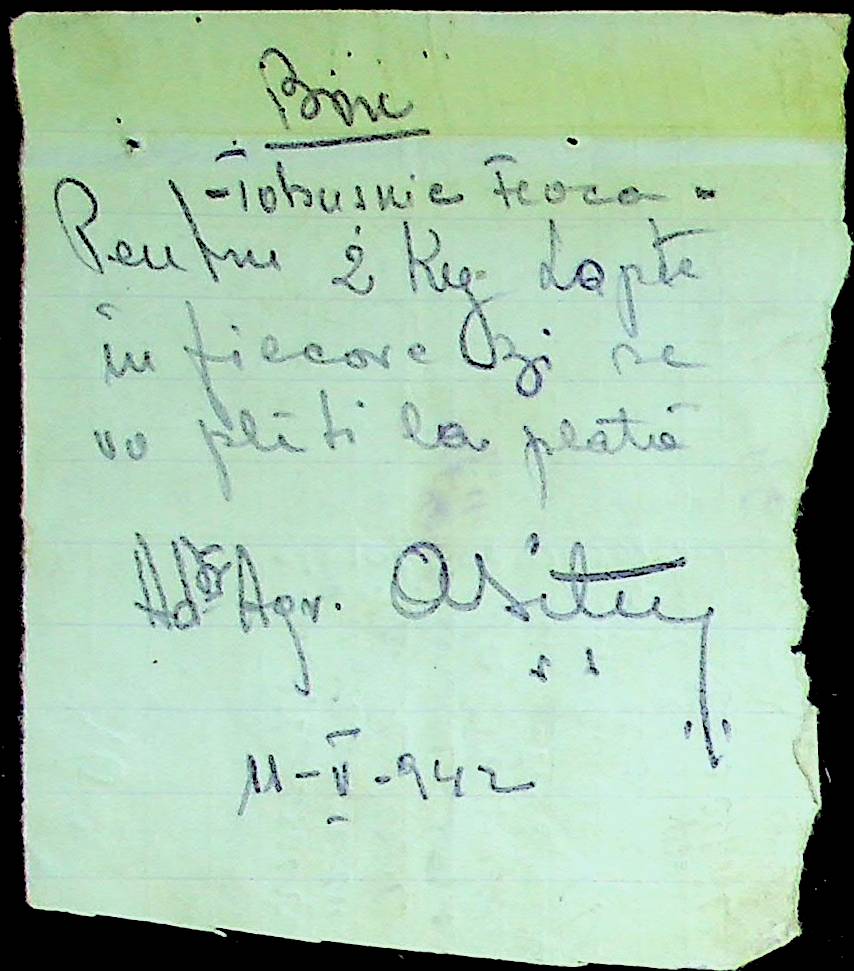 Bon
- Tobusnic Feoca -
Pentru 2 Kg Lapte
în fiecare zi se
va plăti la plată
Agr.
11-V-942